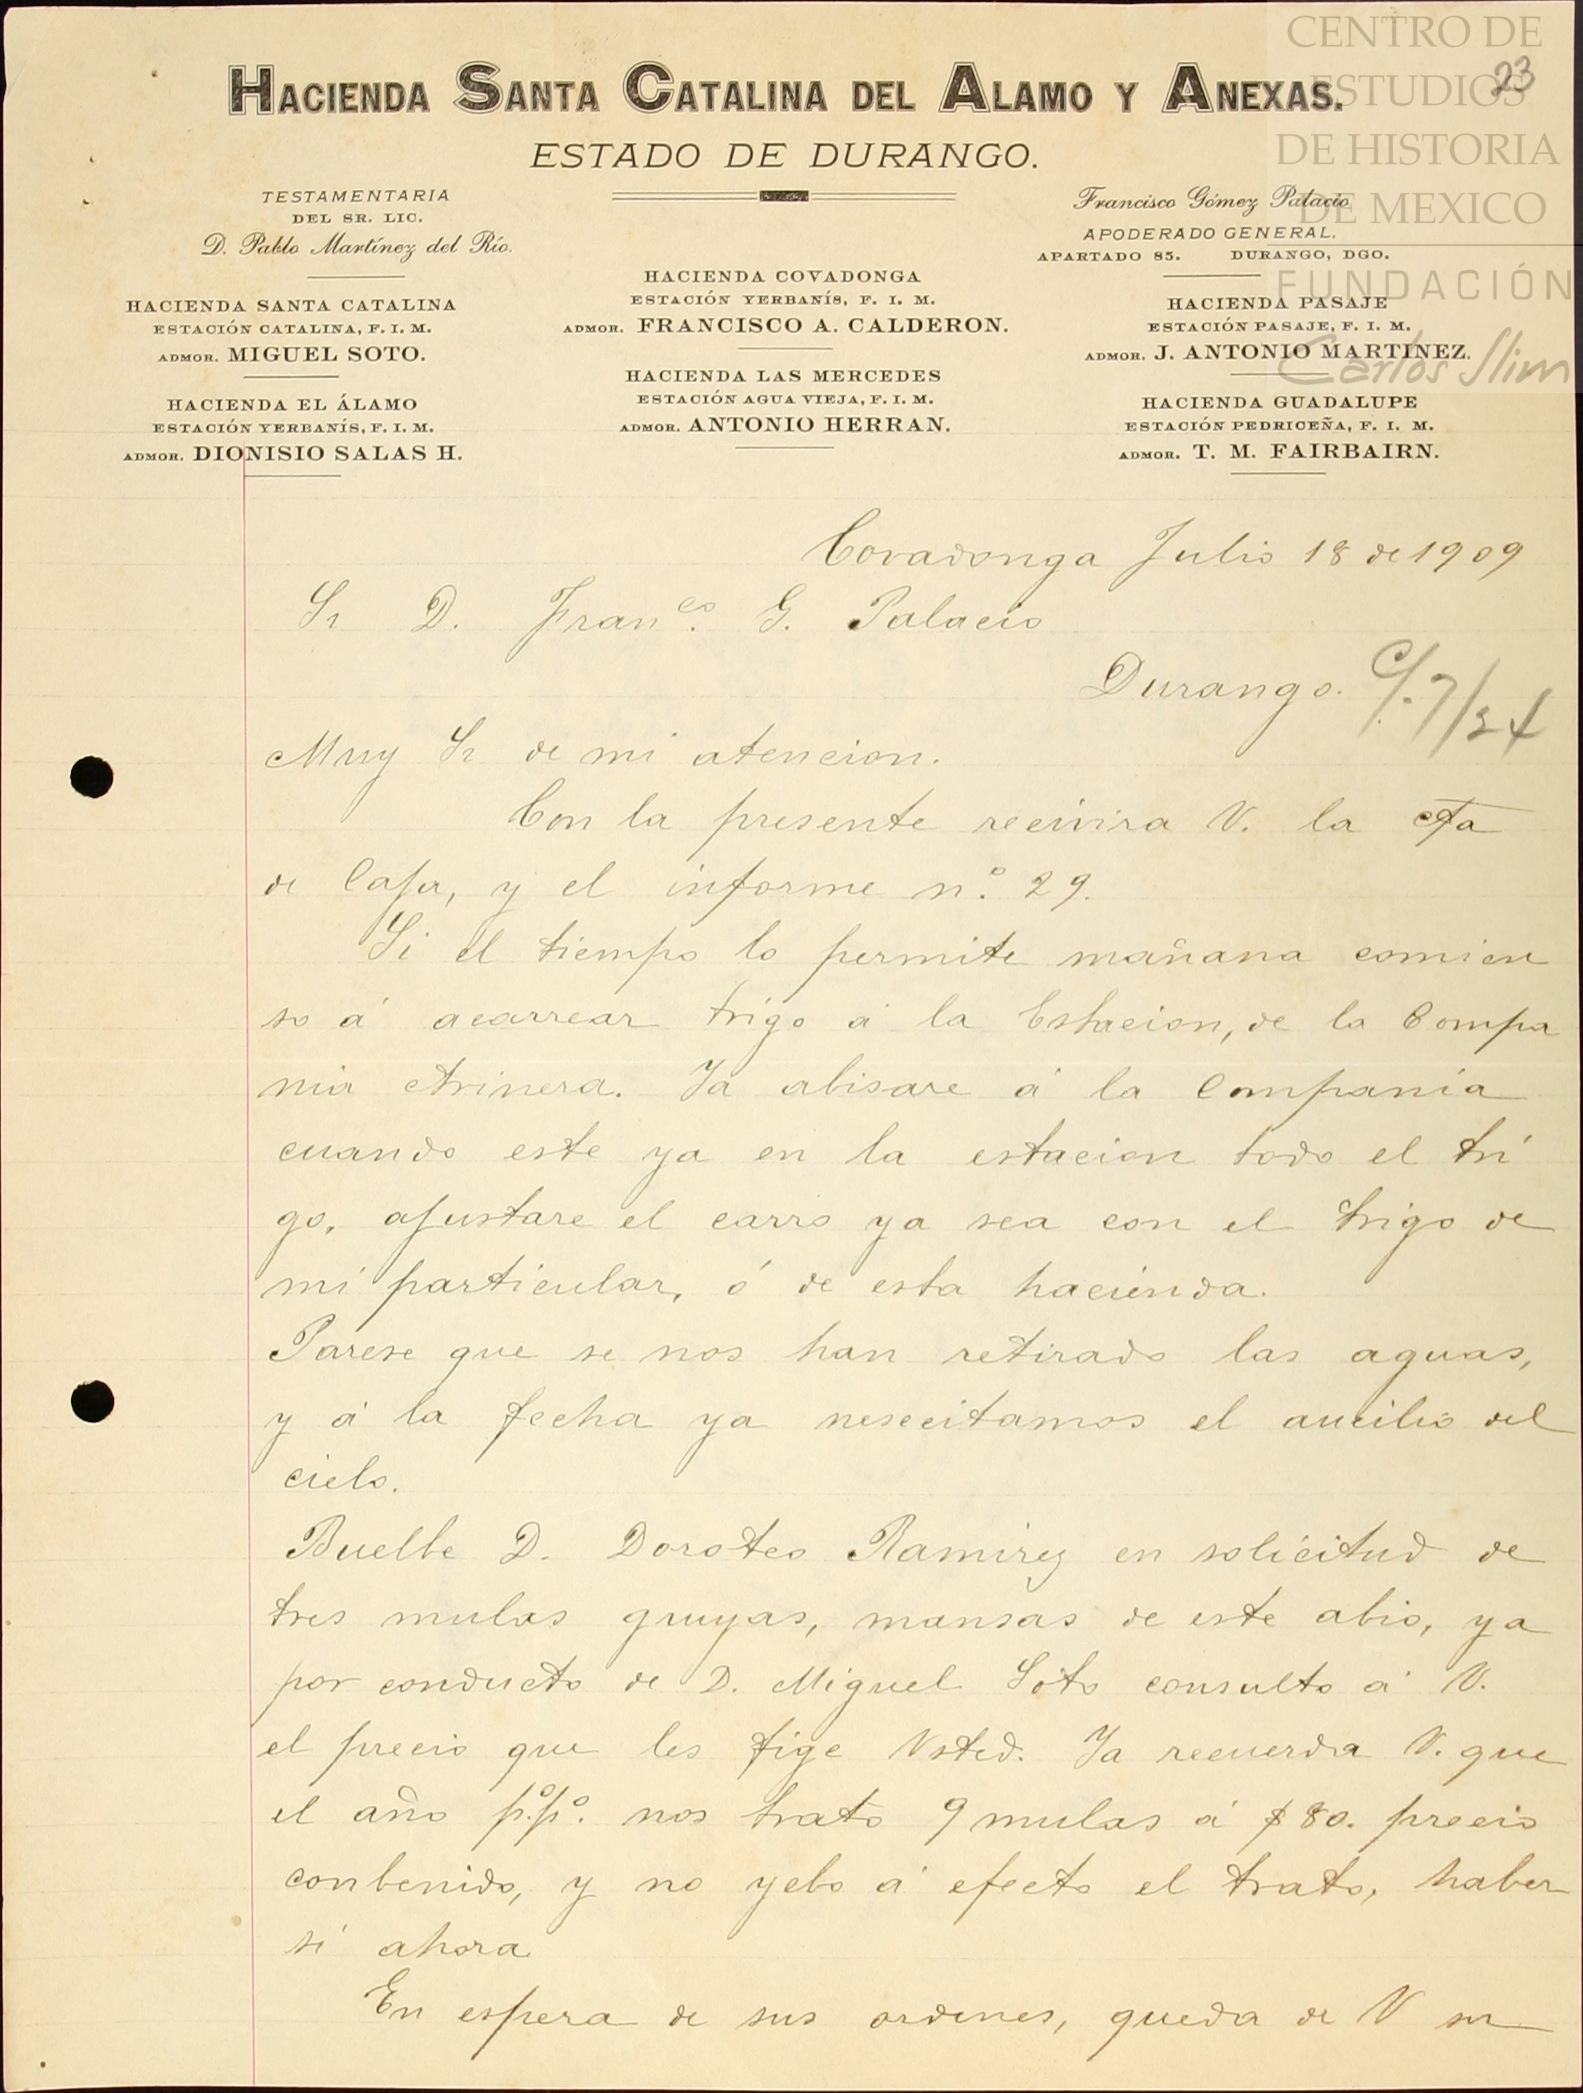 CENTRO DE
ESTUDIOS
DE HISTORIA
DE MEXICO
FUNDACIÓN
Carlos Slim
23
HACIENDA SANTA CATALINA DEL ALAMO Y ANEXAS.
ESTADO DE DURANGO.
TESTAMENTARIA
DEL SR. LIC.
D. Pablo Martínez del Río.
HACIENDA SANTA CATALINA
ESTACIÓN CATALINA, F. I. M.
ADMOR. MIGUEL SOTO.
HACIENDA EL ÁLAMO
ESTACIÓN YERBANÍS, F. I. M.
ADMOR. DIONISIO SALAS H.
HACIENDA COVADONGA
ESTACIÓN YERBANÍS, F. I. M.
ADMOR. FRANCISCO A. CALDERON.
HACIENDA LAS MERCEDES
ESTACIÓN AGUA VIEJA, F. I. M.
ADMOR. ANTONIO HERRAN.
Francisco Gómez Palacio
APODERADO GENERAL.
APARTADO 85. DURANGO, DGO.
HACIENDA PASAJE
ESTACIÓN PASAJE, F. I. M.
ADMOR. J. ANTONIO MARTINEZ.
HACIENDA GUADALUPE
ESTACIÓN PEDRICEÑA, F. I. M.
ADMOR. T. M. FAIRBAIRN.
Covadonga Julio 18 de 1909
Sr D. Franco. G. Palacio
Durango. C/. 7/24
Muy Sr de mi atencion.
Con la presente recivira V. la cta
de Caja, y el informe n.º 29.
Si el tiempo lo permite mañana comien
so á acarrear trigo á la Estacion, de la Compa
nia Arinera. Ya abisare á la Compania
cuando este ya en la estacion todo el tri
go, ajustare el carro ya sea con el trigo de
mi particular, ó de esta hacienda.
Parese que se nos han retirado las aguas,
y á la fecha ya nesecitamos el aucilio del
cielo.
Buelbe D. Doroteo Ramirez en solicitud de
tres mulas gruyas, mansas de este abio, ya
por conducto de D. Miguel Soto consulto á V.
el precio que les fige Usted. Ya recuerda V. que
el año p.º p.º nos trato 9 mulas á $80. precio
conbenido, y no yebo á efecto el trato, haber
si ahora
En espera de sus ordenes, queda de V su